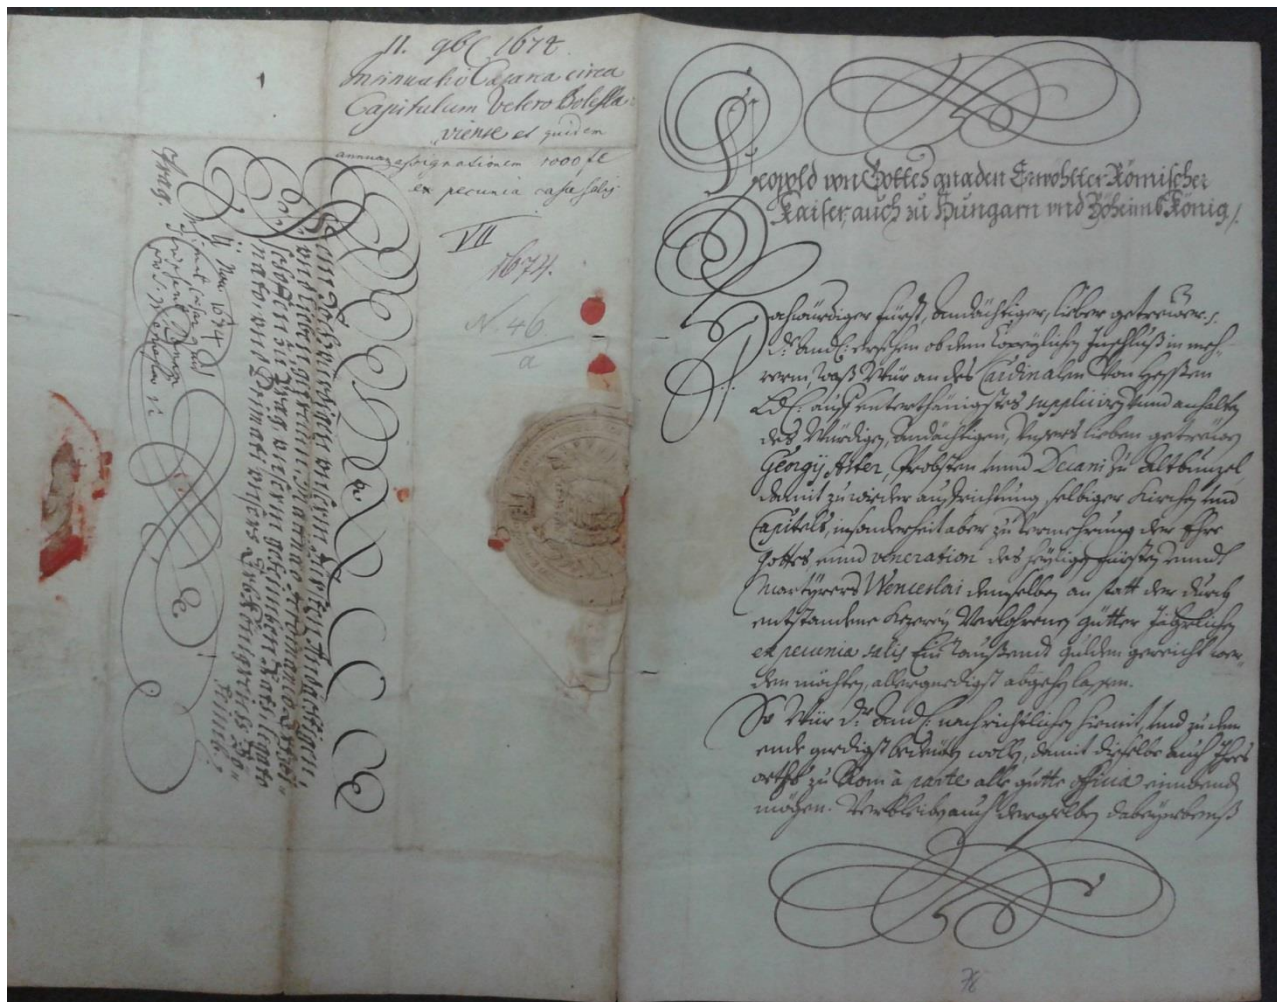 11. 9b[ 1674.
Insinuatio Caesarea circa
Capitulum Vetero Bolesla-
viense et quidem
annuae assignationem 1000 fl
ex pecunia cassa salis
VII
1674.
N. 46
a
Dem Hochwürdigen unserm Fürsten Andächtigen,
und lieben getrewen,
Ertzbi-
schoffen zu Prag, unserm geheimben Rath, Legato
nato, und Primati unsers Erb Königreichs Bö-
heimb.
Prag.
9 Nov 1674
Leopold von Gottes gnaden Erwöhlter Römischer
Kaiser, auch zu Hungarn vnd Böheimb König /.
Hochwürdiger Fürst, Andächtiger, lieber getrewer /.
D: And: ersehen ob dem Copeylichen Inschluß in meh-
rerm, waß Wür an des Cardinalen von Hessen
Ld: auf unterthänigstes suppliciren und anhalten
des Würdigen, Andächtigen, Unsers lieben getrewen
Georgij Aster, Probsten unnd Decani zu Altbunzel,
damit zu wider aufrichtung selbiger Kirchen und
Capitels, insonderheit aber zu vermehrung der Ehre
Gottes unnd veneration des heyligen fürsten unndt
Martyrers Wenceslai demselben an statt der durch
entstandene Kezerey verlohrnen gütter Jährlichen
ex pecunia salis Ein Tausendt gulden gereicht wer-
den möchten, allergnedigst abgehen lassen.
So Wür D: And: nachrichtlichen hiemit, und zu dem
ende gnedigst bedeuten wollen, damit dieselbe auch Ihres
orths zu Rom à parte alle gutte officia einwenden
mögen. Verbleiben auch deroselben dabey
78